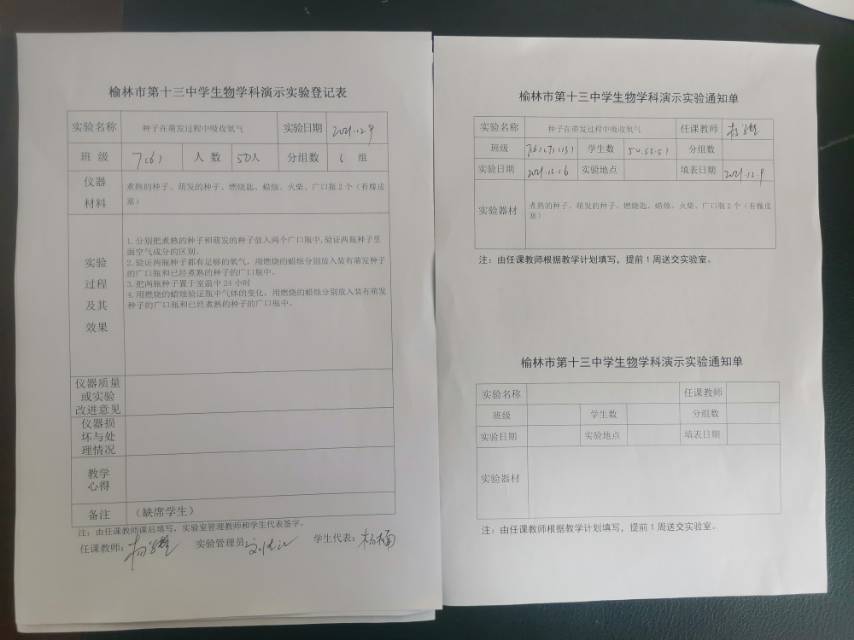 榆林市第十三中学生物学科演示实验登记表
实验名称 种子在萌发过程中吸收氧气 实验日期 2021.12.9
班 级 7(6) 人 数 50人 分组数 6 组
仪器
材料
煮熟的种子、萌发的种子、燃烧匙、蜡烛、火柴、广口瓶2个(有橡皮
塞)
实验
过程
及其
效果
1.分别把煮熟的种子和萌发的种子放入两个广口瓶中,验证两瓶种子里
面空气成分的区别。
2.验证两瓶种子都有足够的氧气。用燃烧的蜡烛分别放入装有萌发种子
的广口瓶和已经煮熟的种子的广口瓶中。
3.把两瓶种子置于室温中24小时
4.用燃烧的蜡烛验证瓶中气体的变化。用燃烧的蜡烛分别放入装有萌发
种子的广口瓶和已经煮熟的种子的广口瓶中。
仪器质量
或实验
改进意见
仪器损
坏与处
理情况
教学
心得
备注 (缺席学生)
注:由任课教师课后填写,实验室管理教师和学生代表签字。
任课教师: 实验管理员 学生代表:杨楠
榆林市第十三中学生物学科演示实验通知单
实验名称 种子在萌发过程中吸收氧气 任课教师
班级 学生数 分组数
实验日期 2021.12.16 实验地点 填表日期 2021.12.9
实验器材
煮熟的种子、萌发的种子、燃烧匙、蜡烛、火柴、广口瓶2个(有橡皮
塞)
注:由任课教师根据教学计划填写,提前1周送交实验室。
榆林市第十三中学生物学科演示实验通知单
实验名称 任课教师
班级 学生数 分组数
实验日期 实验地点 填表日期
实验器材
注:由任课教师根据教学计划填写,提前1周送交实验室。